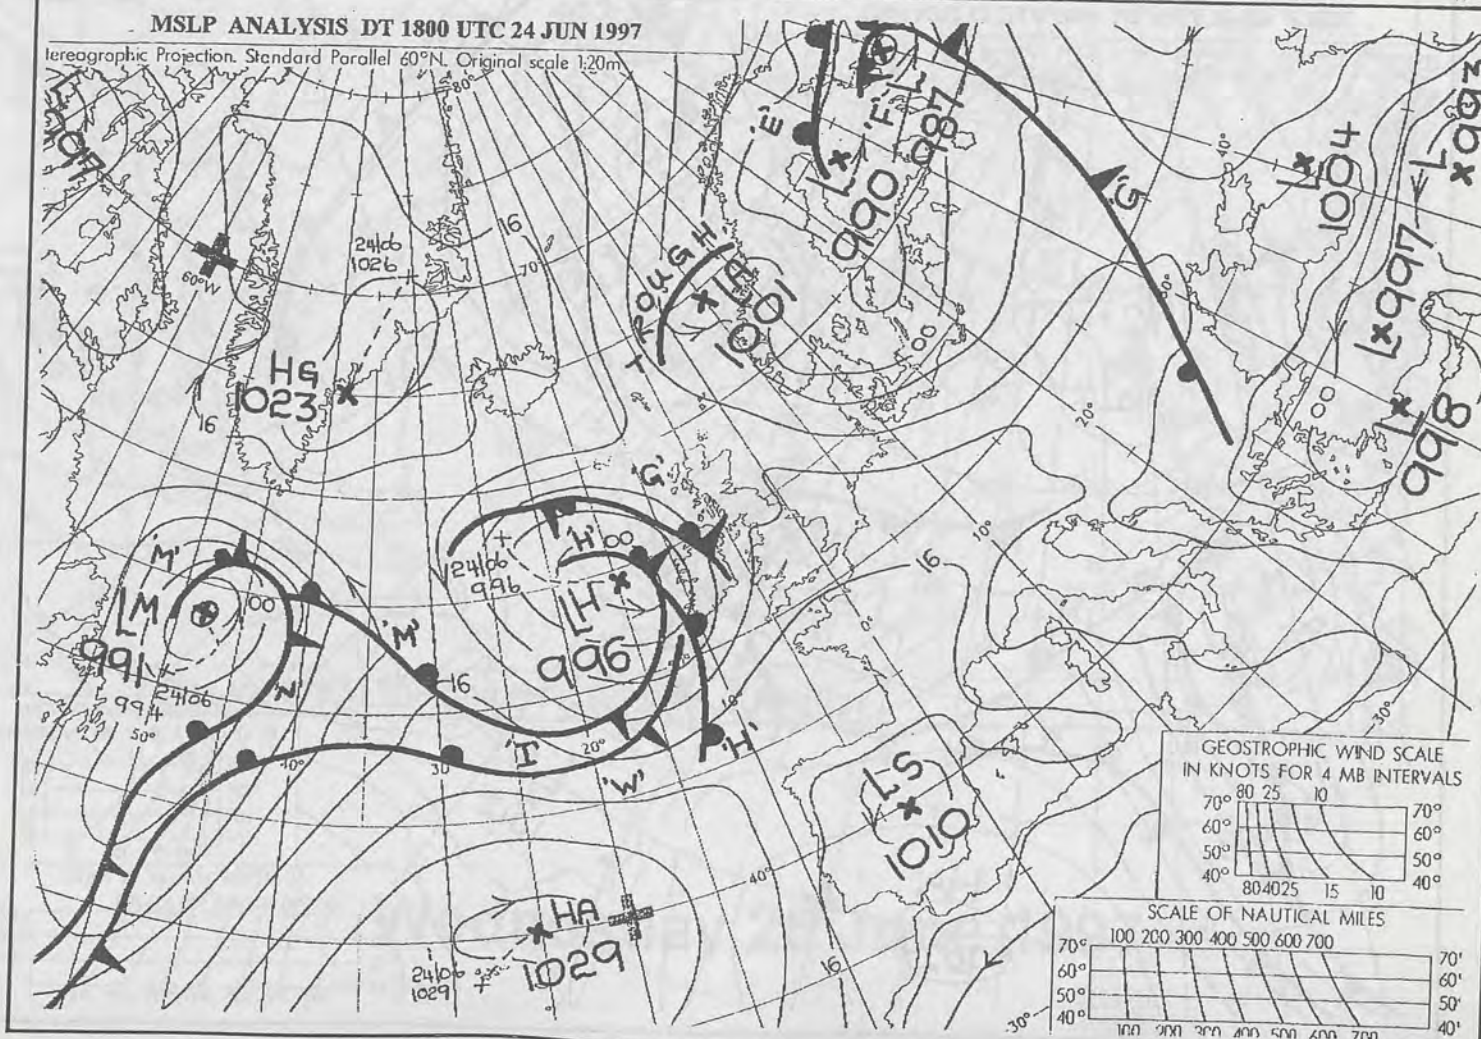 MSLP ANALYSIS DT 1800 UTC 24 JUN 1997
tereographic Projection. Standard Parallel 60°N. Original scale 1:20m
80°
60°W
24/06
1026
16
70°
HG
1023
16
'E'
'F'
L
987
L
990
'G'
40°
L
1004
L
993
L
997
L
998
TROUGH
LA
1001
00
00
00
30°
20°
10°
0°
'G'
'H'
00
24/06
996
LH
996
'M'
LM
991
00
24/06
994
50°
'N'
'M'
16
40°
30
'I'
20°
'W'
'H'
10°
16
LS
1010
40°
HA
1029
24/06
1029
16
30°
30°
GEOSTROPHIC WIND SCALE
IN KNOTS FOR 4 MB INTERVALS
80 25 10
70° 70°
60° 60°
50° 50°
40° 40°
80 40 25 15 10
SCALE OF NAUTICAL MILES
100 200 300 400 500 600 700
70° 70'
60° 60'
50° 50'
40° 40'
100 200 300 400 500 600 700